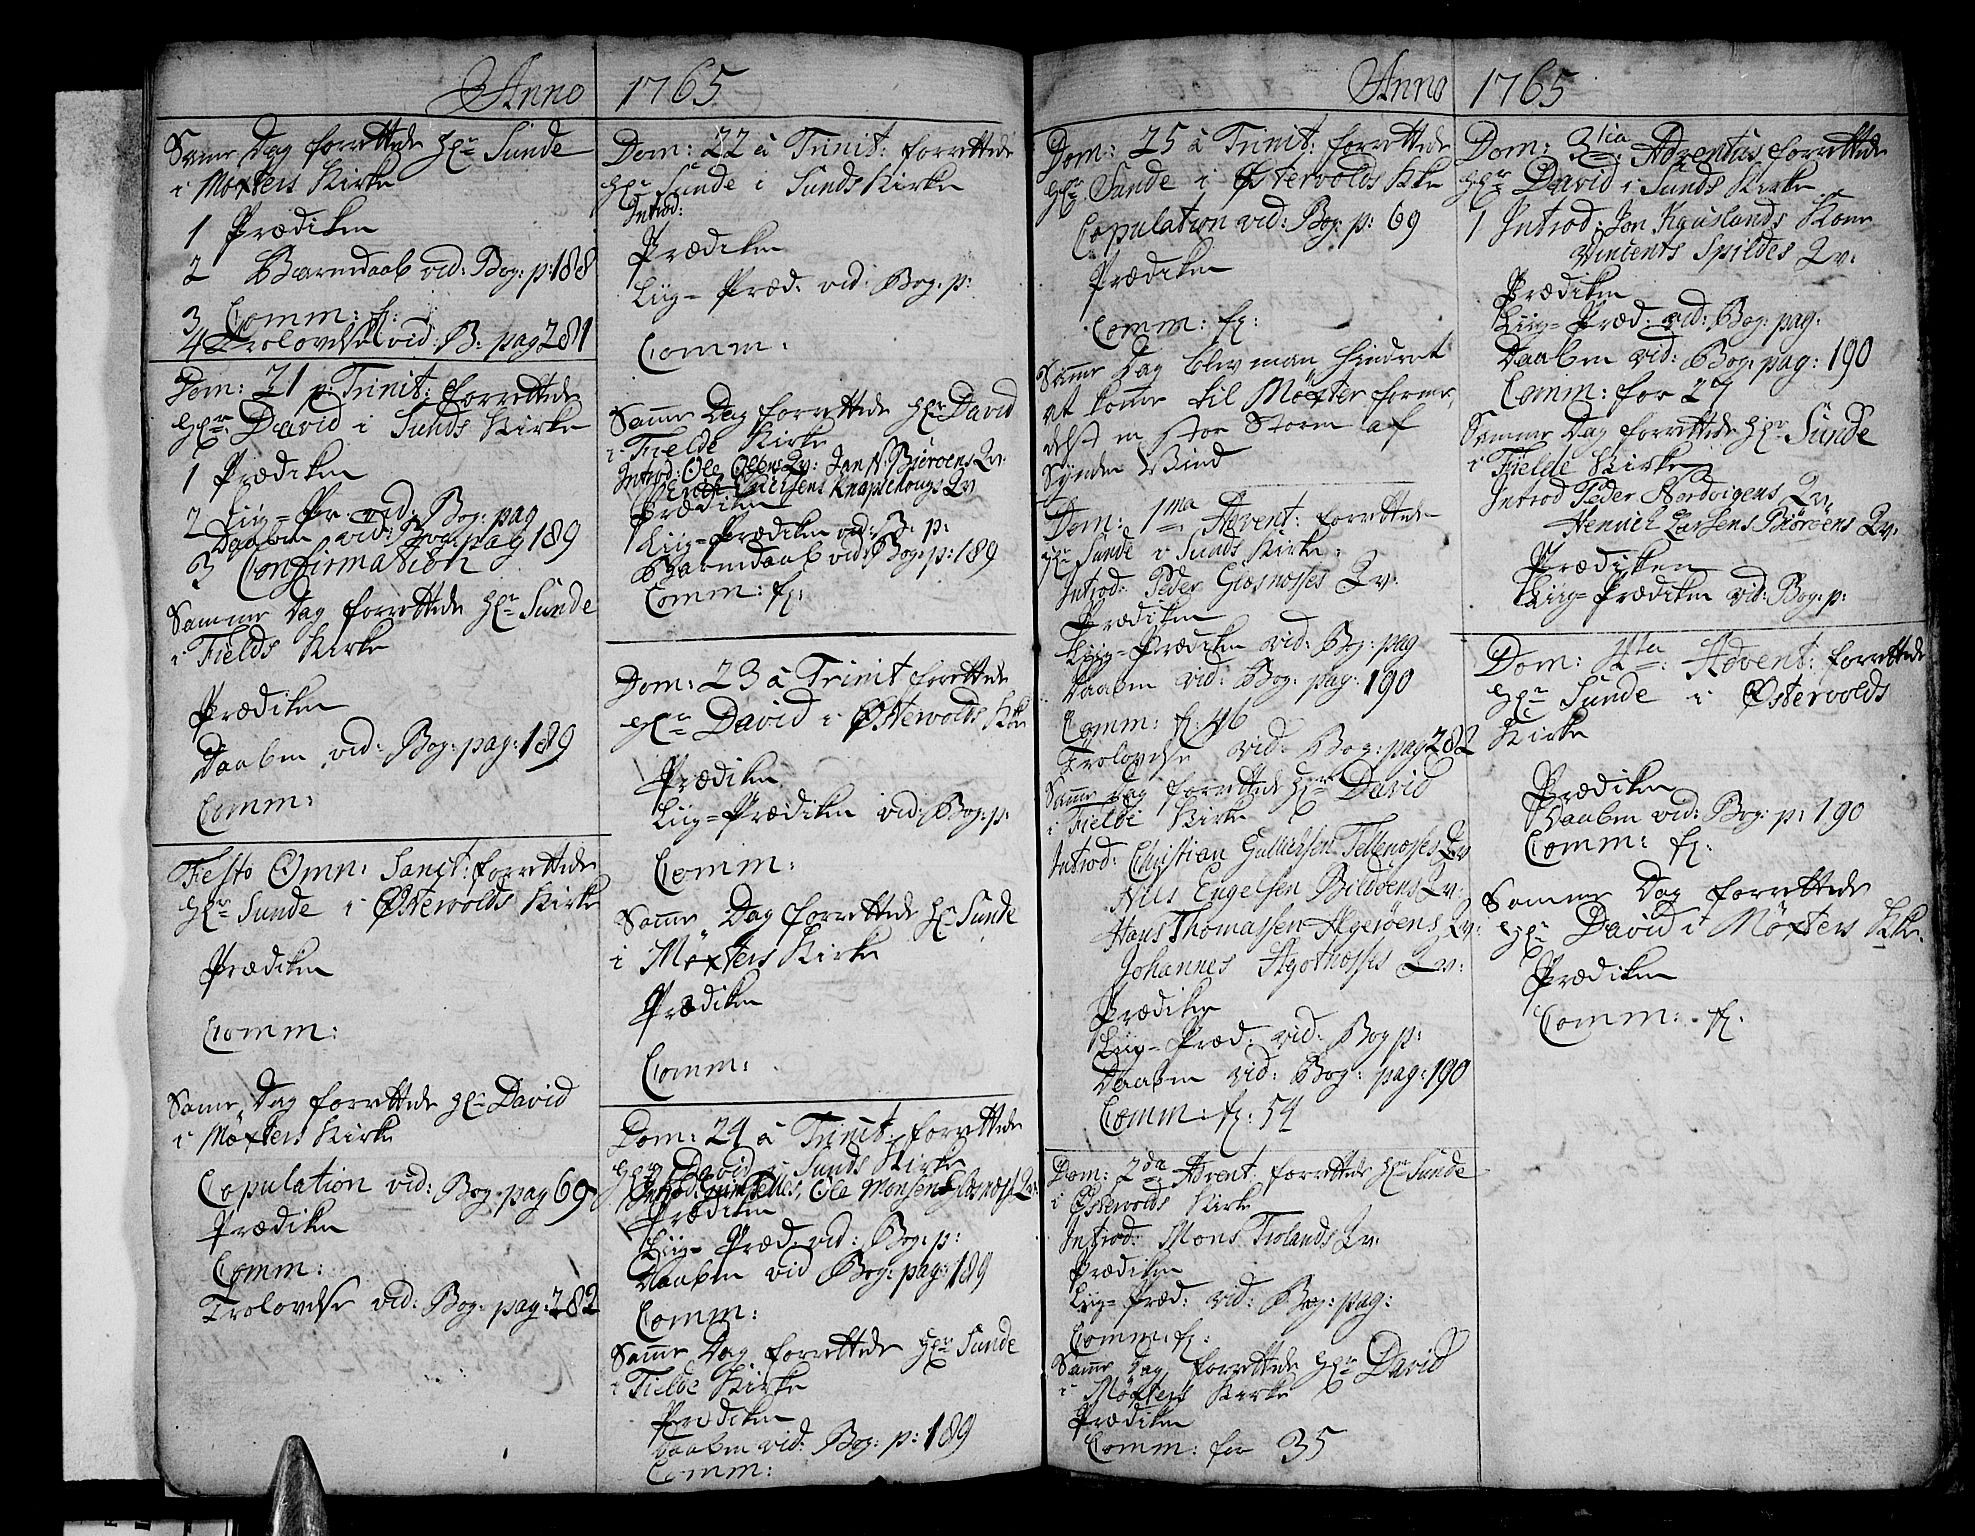 Anno 1765
Same Dag forrettede Hr. Sunde
i Møxters Kirke
1 Prædiken
2 Barnedaab vid: Bog: p: 188
3 Comm: fr:
4 Trolovelse vid: B: pag 281
Dom: 21 p. Trinit: forrettede
Hr. David i Sunds Kirke
1 Prædiken
2 Liig-Pr. vid: Bog: pag
Daaben vid: Bog: pag 189
3 Confirmation
Samme Dag forrettede Hr. Sunde
i Fields Kirke
Prædiken
Daaben vid: Bog: pag: 189
Comm:
Festo Omn: Sanct: forrettede
Hr. Sunde i Østervolds Kirke
Prædiken
Comm:
Same Dag forrettede Hr. David
i Møxters Kirke
Copulation vid: Bog: pag 69
Prædiken
Comm:
Trolovelse vid: Bog: pag: 282
Dom: 22 à Trinit: forrettede
Hr. Sunde i Sunds Kirke
Introd:
Prædiken
Liig-Præd: vid: Bog: p:
Comm:
Same Dag forrettede Hr. David
i Fielde Kirke
Introd: Ole Olsens Qv: Jan N. Biøroens Qv:
Erichsens Knaplehougs Qv
Prædiken
Liig-Prædiken vid: B: p:
Barnedaab vid: Bog: p: 189
Comm: fr:
Dom: 23 à Trinit forrettede
Hr. David i Østervolds Kke
Prædiken
Liig-Prædiken vid: Bog: p:
Comm:
Same Dag forrettede Hr. Sunde
i Møxters Kirke
Prædiken
Comm:
Dom: 24 à Trinit: forrettede
Hr. David i Sunds Kirke
Introd: Ole Monsen Qv:
Prædiken
Liig-Præd: vid: Bog: p:
Daaben vid Bog: pag: 189
Comm:
Same Dag forrettede Hr. Sunde
i Fielde Kirke
Prædiken
Daaben vid: Bog: p: 189
Comm:
Anno 1765
Dom: 25 à Trinit: forrettede
Hr. Sunde i Østervolds Kke
Copulation vid: Bog: p: 69
Prædiken
Comm: fr:
Same Dag blev man hindret
at kome til Møxter forme-
delst en stor Storm af
Synden Wind
Dom: 1ma Advent: forrettede
Hr. Sunde i Sunds Kirke:
Introd: Peder Giøsnøsses Qv:
Prædiken
Liig-Prædiken vid: Bog: pag
Daaben vid: Bog: pag: 190
Comm: fr: 46
Trolovelse vid: Bog: pag 282
Same Dag forrettede Hr. David
i Fielde Kirke
Introd: Christian Gullichsen Tellenøsses Qv
Nils Engelsen Bildøens Qv:
Hans Thomassen Algerøens Qv:
Johannes Agotnøsses Qv:
Prædiken
Liig-Præd: vid: Bog p:
Daaben vid: Bog: pag: 190
Comm: fr: 54
Dom: 2da Advent forrettede Hr. Sunde
i Østervolds Kirke
Introd: Mons Trolands Qv:
Prædiken
Liig-Præd: vid: Bog: pag:
Comm: fr:
Same Dag forrettede Hr. David
i Møxters Kirke
Prædiken
Comm: for 35
Dom: 3tia Adventus forrettede
Hr. David i Sunds Kirke
1 Introd: Jon Kauslands Kone
Vincents Spildes Qv:
Prædiken
Liig-Præd: vid: Bog: pag:
Daaben vid: Bog: pag: 190
Comm: for 27
Samme Dag forrettede Hr. Sunde
i Fielde Kirke
Introd Peder Nordvigens Qv:
Henrich Larsens Biørøens Qv:
Prædiken
Liig-Prædiken vid: Bog: p:
Dom: 4ta Advent: forrettede
Hr. Sunde i Østervolds
Kirke
Prædiken
Daaben vid: Bog: p: 190
Comm: fr:
Samme Dag forrettede
Hr. David i Møxters Kke.
Prædiken
Comm: fr: